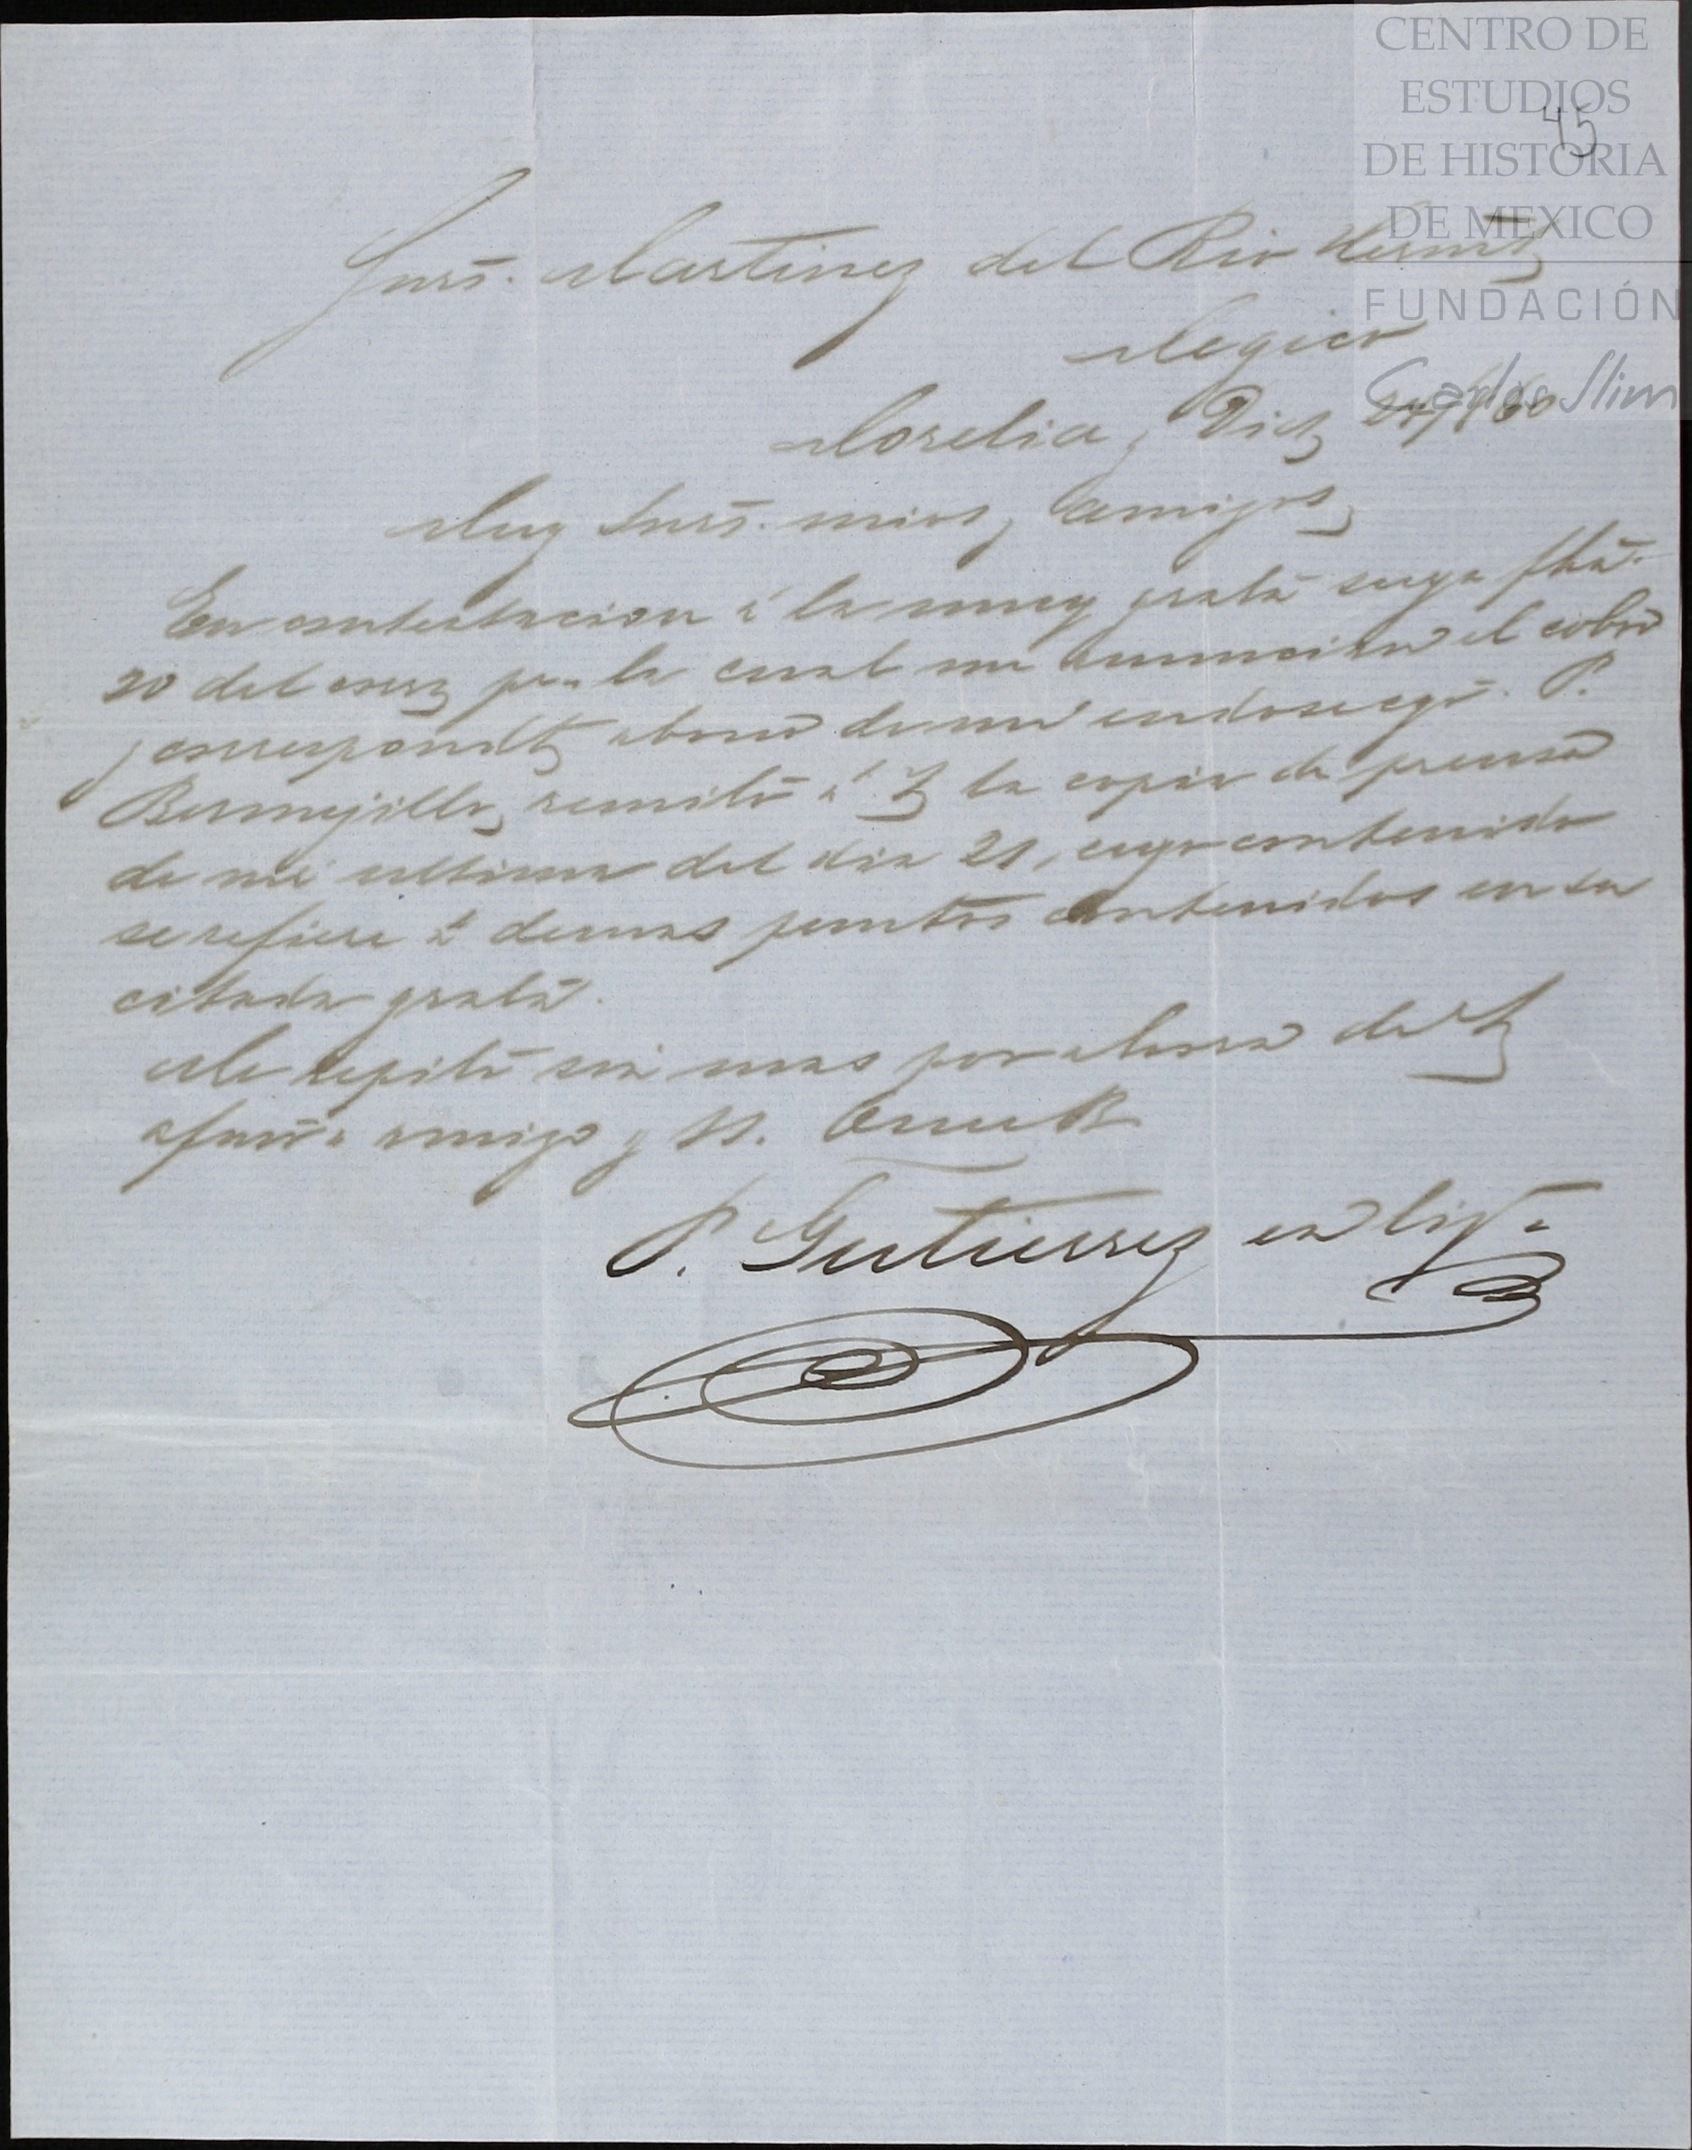 CENTRO DE
ESTUDIOS
DE HISTORIA
DE MEXICO
FUNDACIÓN
Carlos Slim
45
Snrs. Martinez del Rio Herms
Megico
Morelia, Dic 24/860
Muy Snrs. mios y amigos,
En contestacion á la muy grata suya fha.
20 del corr pr. la cual me anuncian el cobro
y correspondte abono de mi endoso cgo. P.
Bermejillo, remito á la copia de prensa
de mi ultima del dia 21, cuyo contenido
se refiere á demas puntos contenidos en su
citada grata.
Me repito sin mas por ahora de
afmo. amigo y SS.
P. Gutierrez